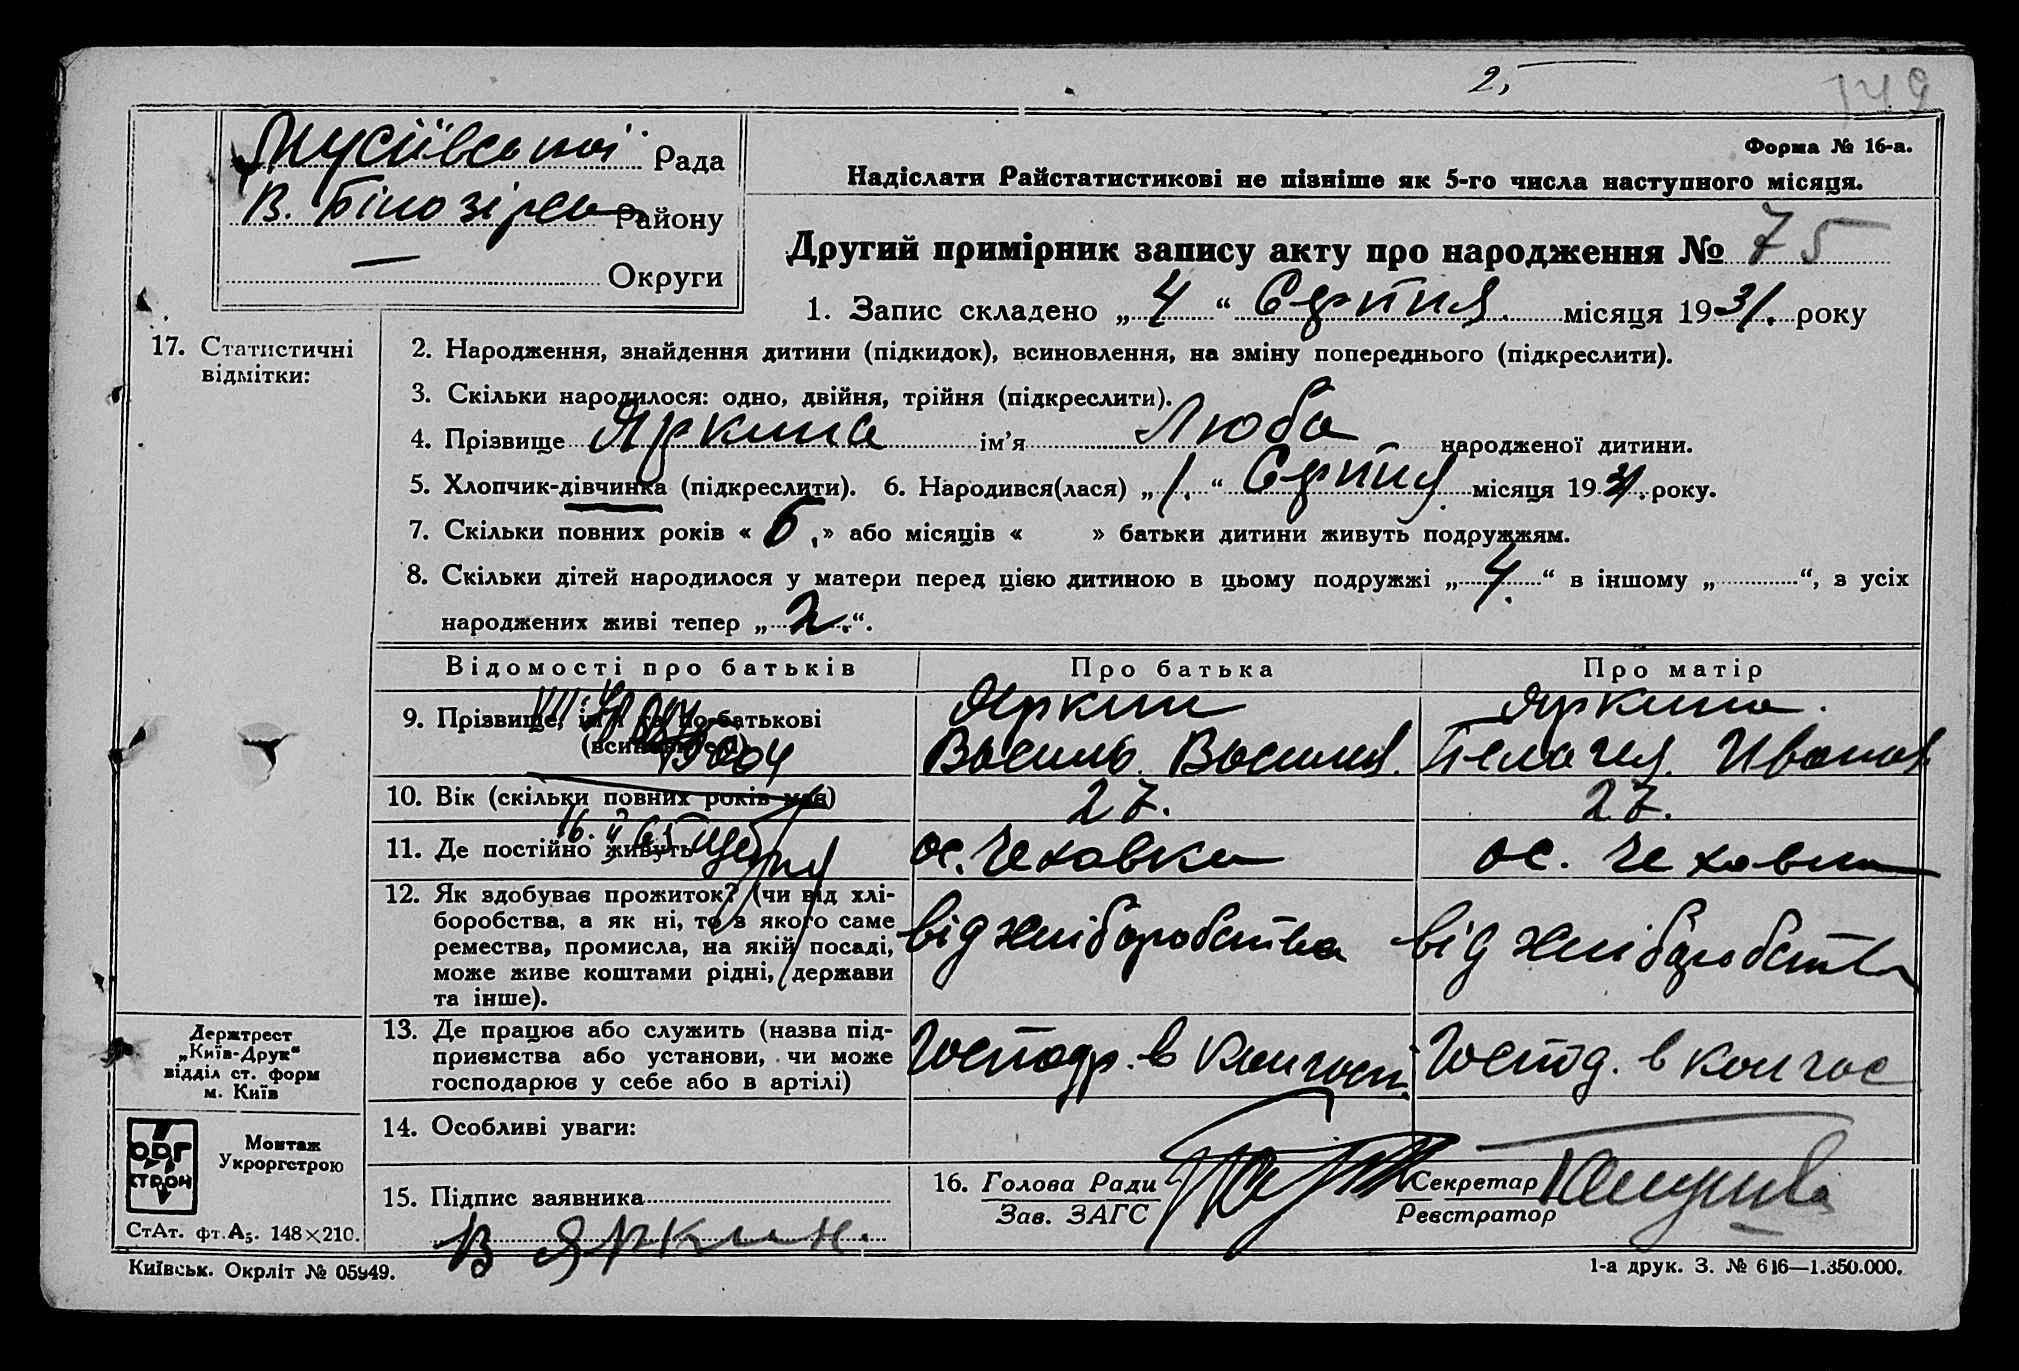 2,
149
Форма № 16-а.
Мусіївської Рада
В. Білозірсь Району
— Округи
Надіслати Райстатистикові не пізніше як 5-го числа наступного місяця.
Другий примірник запису акту про народження № 75
1. Запис складено „ 4 “ Серпня. місяця 1931. року
17. Статистичні
відмітки:
2. Народження, знайдення дитини (підкидок), всиновлення, на зміну попереднього (підкреслити).
3. Скільки народилося: одно, двійня, трійня (підкреслити).
4. Прізвище Яркина ім’я Люба народженої дитини.
5. Хлопчик-дівчинка (підкреслити). 6. Народився(лася) „ 1. “ Серпня місяця 1931. року.
7. Скільки повних років « 5. » або місяців « » батьки дитини живуть подружжям.
8. Скільки дітей народилося у матери перед цією дитиною в цьому подружжі „ 4. “ в іншому „ “, з усіх
народжених живі тепер „ 2. “.
Відомості про батьків Про батька Про матір
9. Прізвище, ім’я та по-батькові
(всиновителя)
Яркин
Василь Василів.
Яркина.
Пелагия. Иванов
10. Вік (скільки повних років має) 27. 27.
11. Де постійно живуть ос. Чеховка ос. Чеховка
12. Як здобуває прожиток? (чи від хлі-
боробства, а як ні, то з якого саме
ремества, промисла, на якій посаді,
може живе коштами рідні, держави
та інше).
від хліборобства від хліборобства
13. Де працює або служить (назва під-
приємства або установи, чи може
господарює у себе або в артілі)
Господр. в колгосп. Господ. в колгос
14. Особливі уваги:
15. Підпис заявника
В Яркин.
16. Голова Ради
Зав. ЗАГС
Секретар
Реєстратор
Держтрест
„Київ-Друк“
відділ ст. форм
м. Київ
ОРГ
СТРОЙ
Монтаж
Укроргстрою
СтАт. фт. А5. 148×210.
Київськ. Окрліт № 05949.
1-а друк. З. № 616—1.350.000.